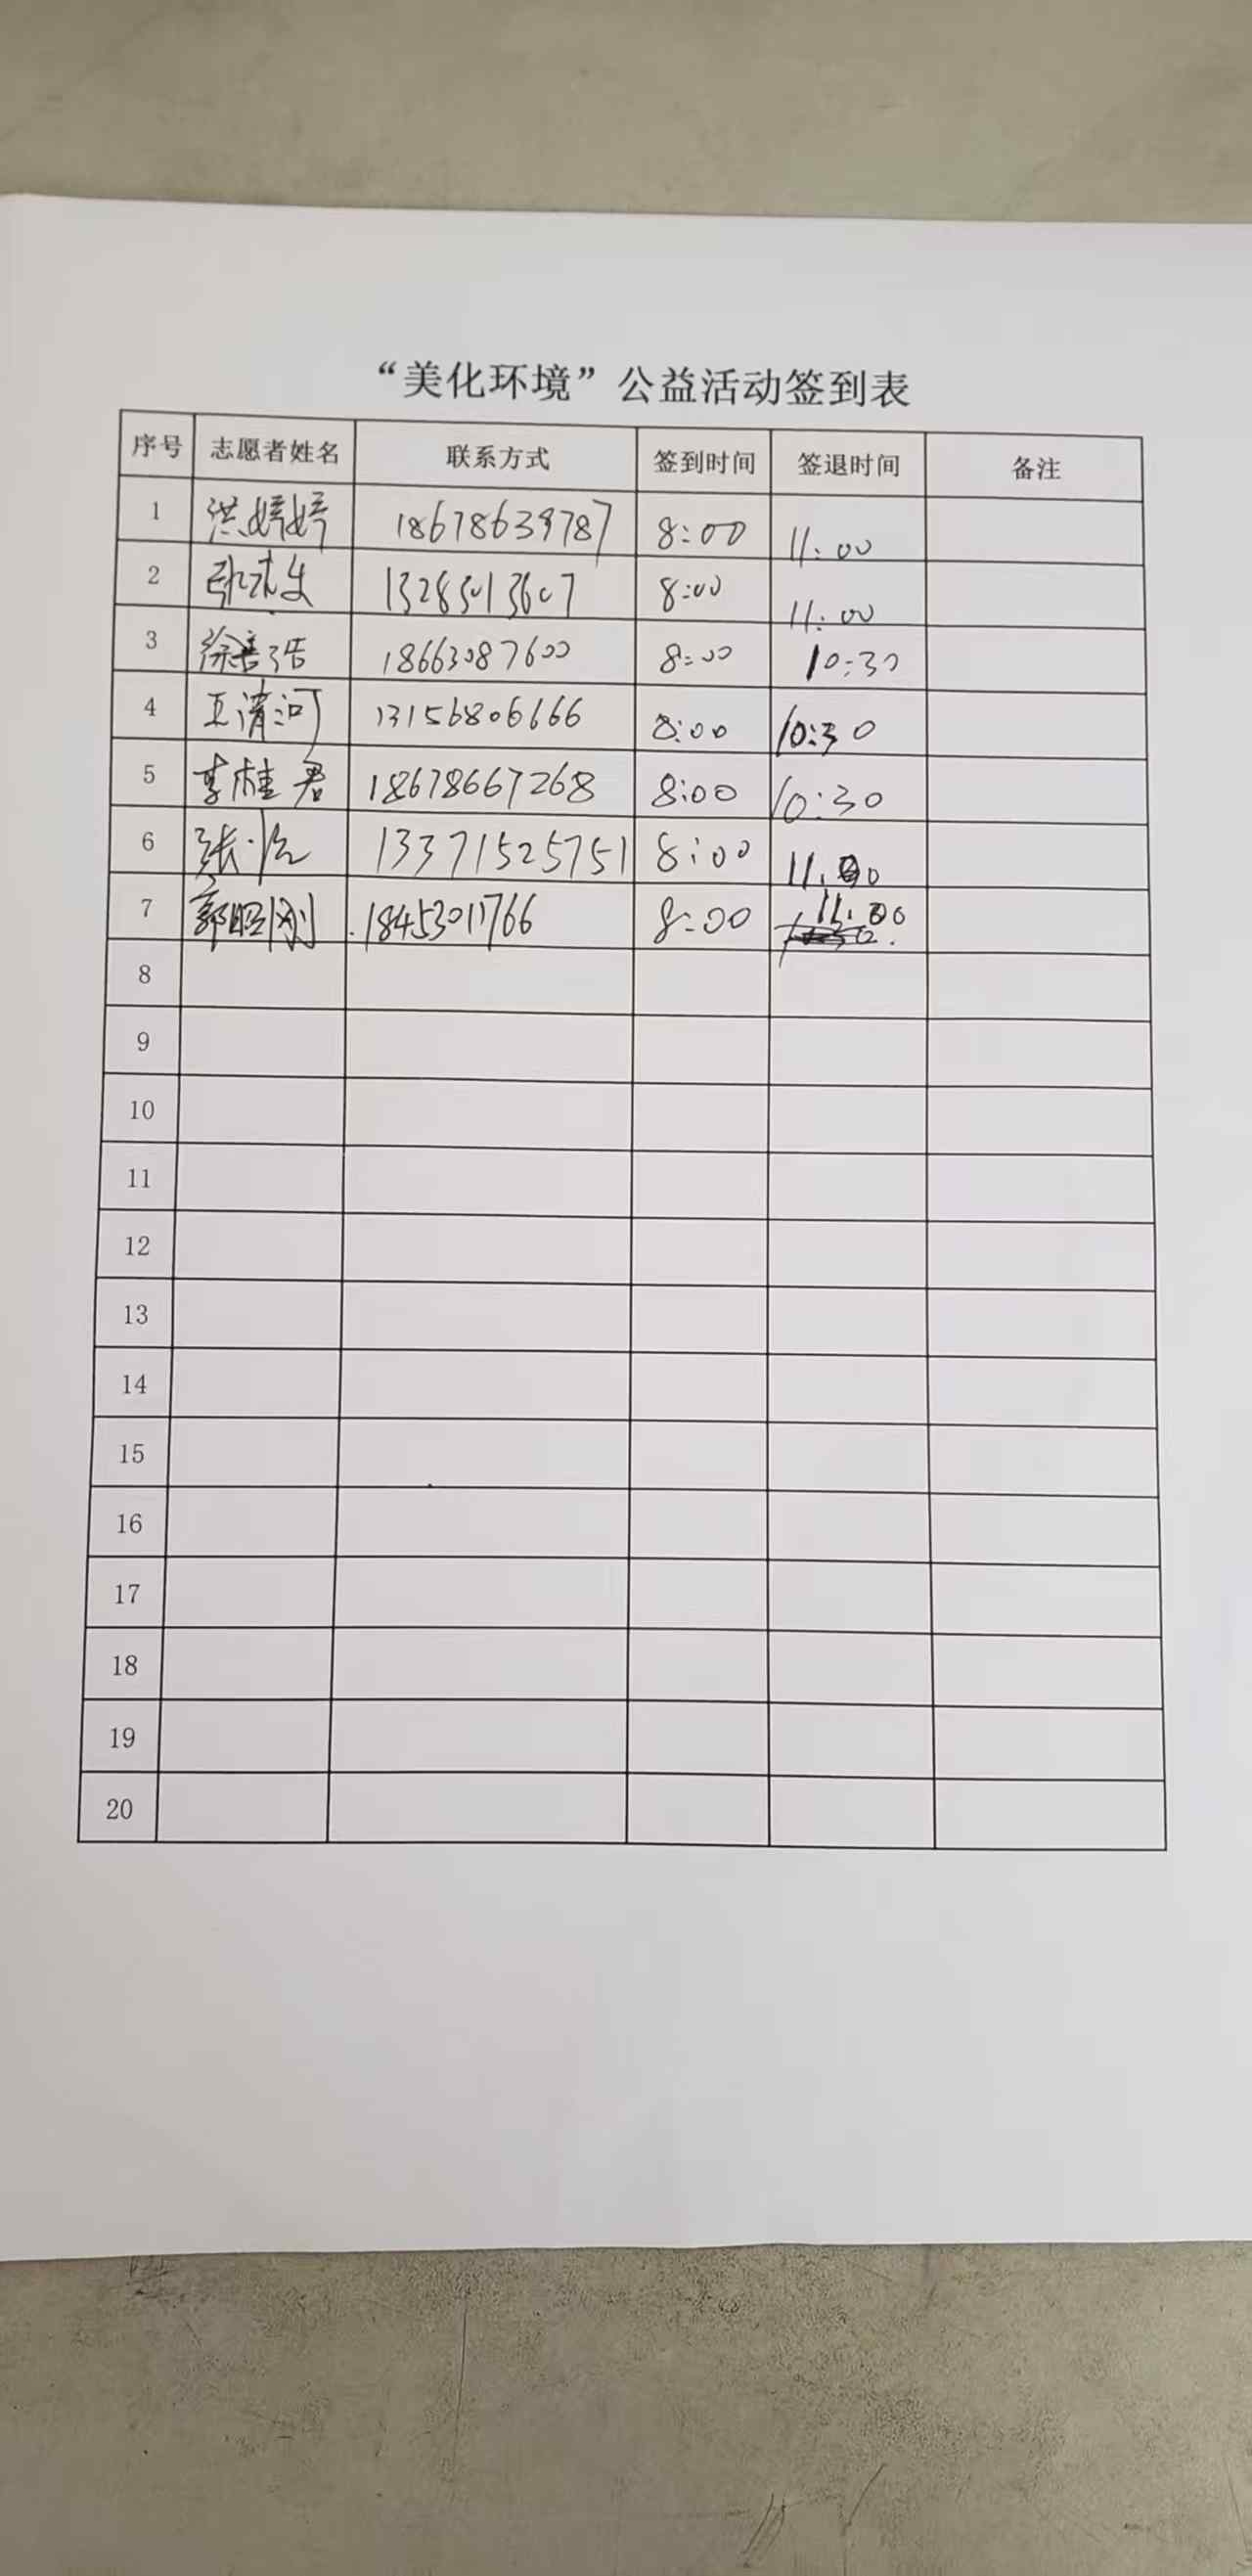 “美化环境”公益活动签到表
序号 志愿者姓名 联系方式 签到时间 签退时间 备注
1 洪婷婷 18678639787 8:00 11:00
2 13285013607 8:00 11:00
3 徐善浩 18663087600 8:00 10:30
4 王清河 13156806666 8:00 10:30
5 李桂君 18678667268 8:00 10:30
6 张 13371525751 8:00 11.00
7 郭昭刚 18453011766 8:00 11:00
8
9
10
11
12
13
14
15
16
17
18
19
20